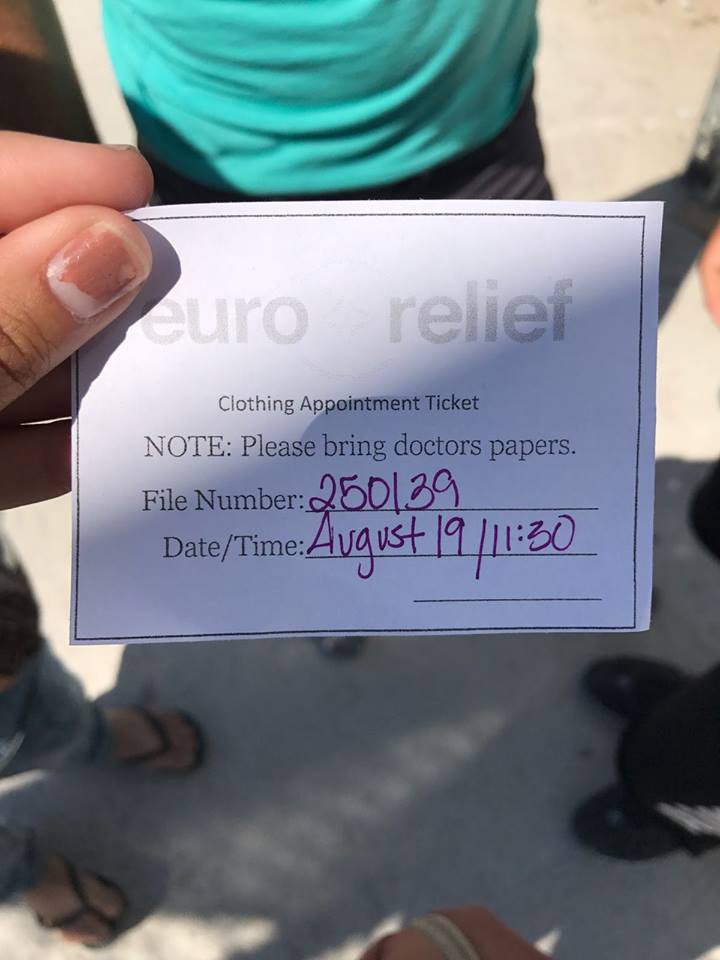 euro relief
Clothing Appointment Ticket
NOTE: Please bring doctors papers.
File Number: 250139
Date/Time: August 19 / 11:30